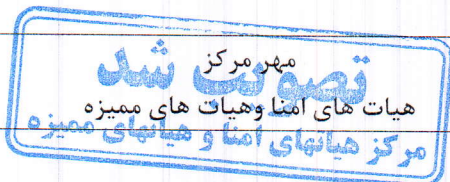 مهر مرکز
تصویب شد
هیات های امنا وهیات های ممیزه
مرکز هیأتهای امنا و هیأتهای ممیزه